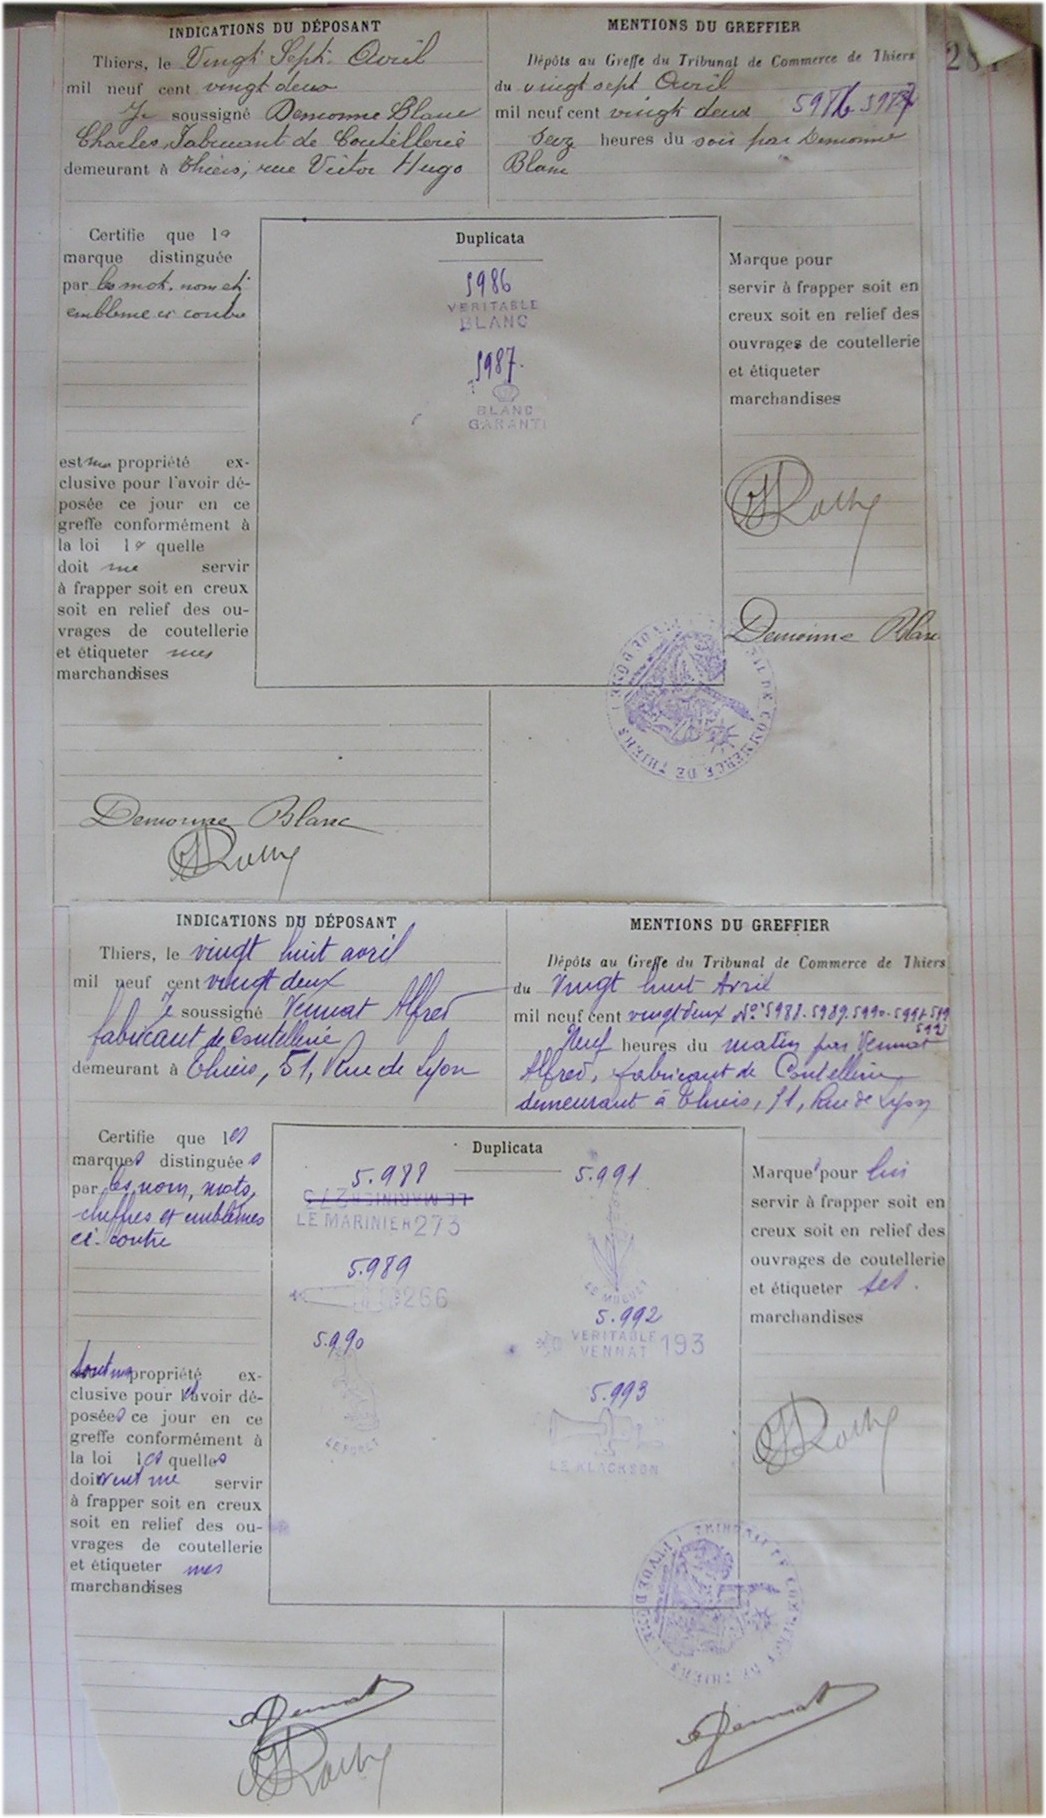 INDICATIONS DU DÉPOSANT
Thiers, le Vingt Sept Avril
mil neuf cent vingt deux
Je soussigné Demonne Blanc
Charles, Fabricant de Coutellerie
demeurant à Thiers, rue Victor Hugo
MENTIONS DU GREFFIER
Dépôts au Greffe du Tribunal de Commerce de Thiers
du vingt sept Avril
mil neuf cent vingt deux
heures du soir par Demonne
Blanc
Certifie que la
marque distinguée
par les mot, nom et
emblème ci contre
est ma propriété ex-
clusive pour l'avoir dé-
posée ce jour en ce
greffe conformément à
la loi la quelle
doit me servir
à frapper soit en creux
soit en relief des ou-
vrages de coutellerie
et étiqueter mes
marchandises
Duplicata
5986
VERITABLE
BLANC
5987.
BLANC
GARANTI
Marque pour
servir à frapper soit en
creux soit en relief des
ouvrages de coutellerie
et étiqueter
marchandises
Demonne Blanc
DE COMMERCE DE THIERS
Demonne Blanc
INDICATIONS DU DÉPOSANT
Thiers, le vingt huit avril
mil neuf cent vingt deux
Je soussigné Vennat Alfred
fabricant de Coutellerie
demeurant à Thiers, 51, Rue de Lyon
MENTIONS DU GREFFIER
Dépôts au Greffe du Tribunal de Commerce de Thiers
du Vingt huit Avril
mil neuf cent vingt deux Nos 5988. 5989. 5990. 5991.
Neuf heures du matin par Vennat
Alfred, fabricant de Coutellerie
demeurant à Thiers, 51, Rue de Lyon
Certifie que les
marques distinguées
par les nom, mots,
chiffres et emblèmes
ci-contre
sont ma propriété ex-
clusive pour les avoir dé-
posées ce jour en ce
greffe conformément à
la loi les quelles
doivent me servir
à frapper soit en creux
soit en relief des ou-
vrages de coutellerie
et étiqueter mes
marchandises
Duplicata
5.988
LE MARINIER 273
LE MARINIER 273
5.989
266
5.990
LE FORET
5.991
LE MUGUET
5.992
VERITABLE
VENNAT 193
5.993
LE KLACKSON
Marques pour lui
servir à frapper soit en
creux soit en relief des
ouvrages de coutellerie
et étiqueter ses
marchandises
TRIBUNAL DE COMMERCE DE THIERS
Vennat
Vennat